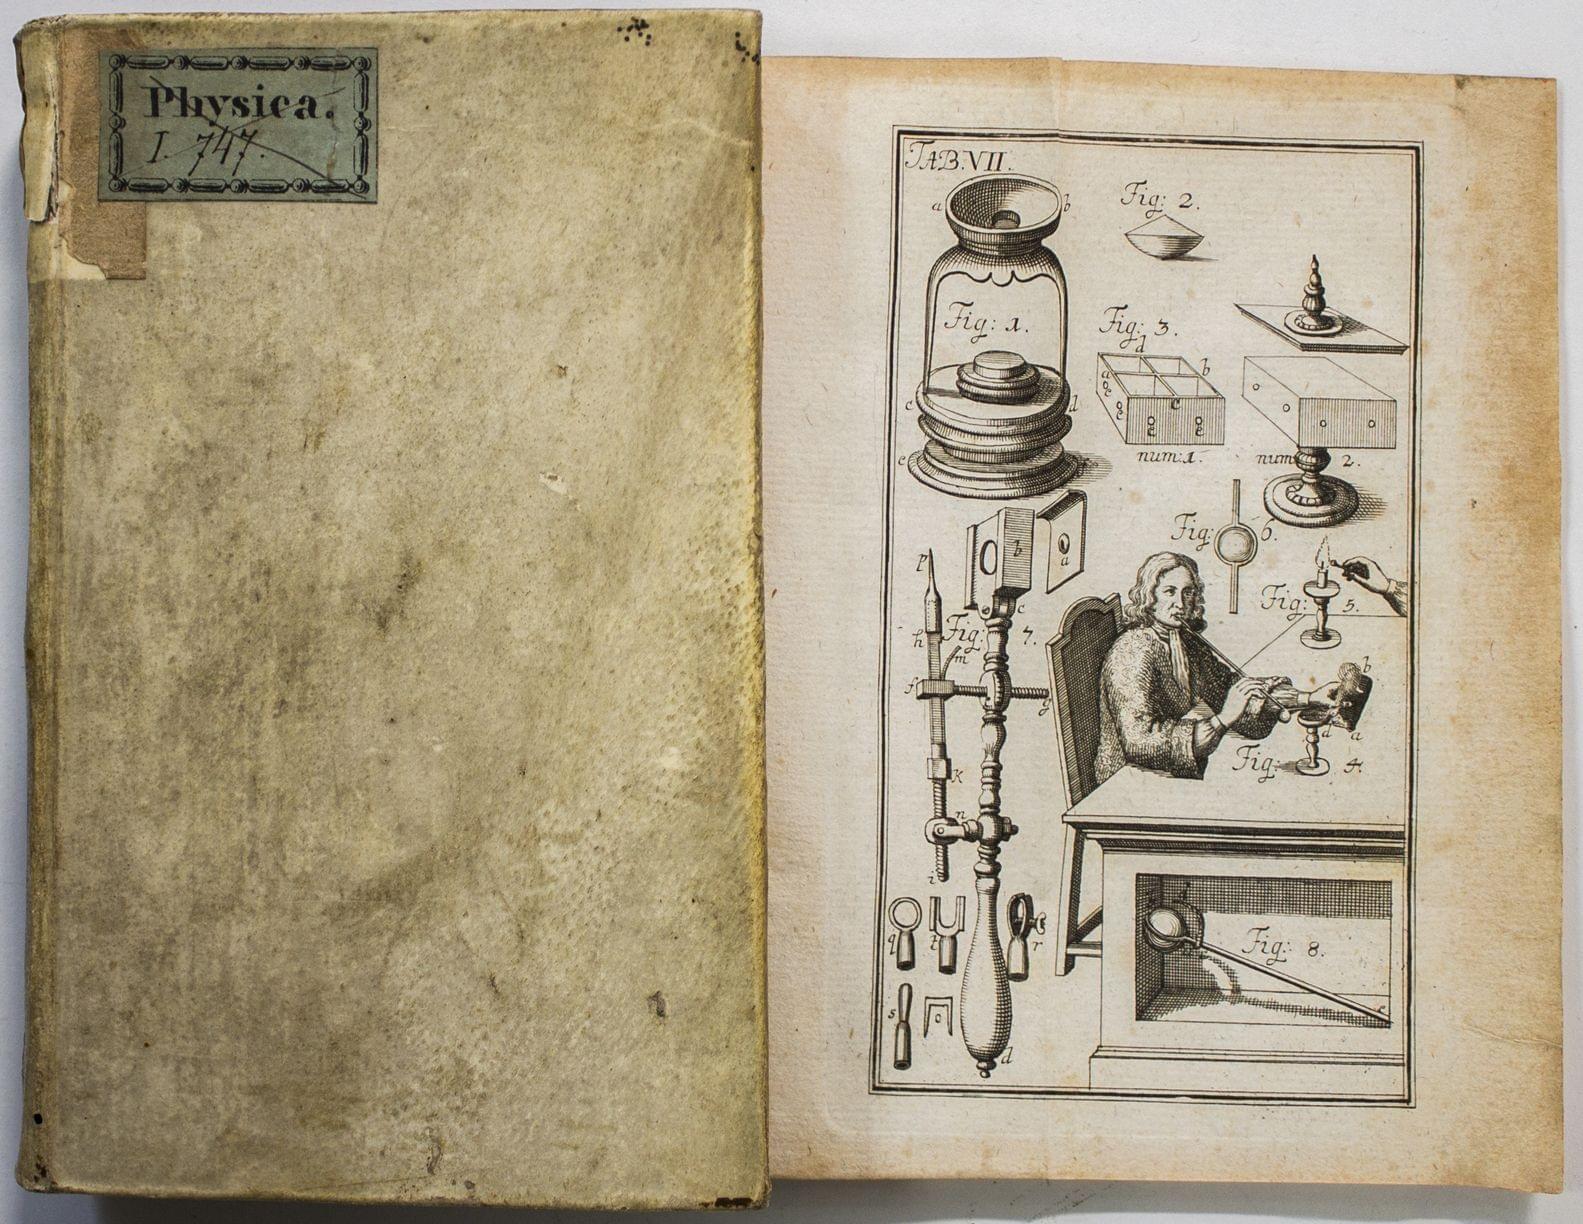 Physica.
I. 747.
TAB. VII.
a
b
Fig: 2.
Fig: 1.
Fig: 3.
d
a
b
e
c
e
e
e
c
d
num: 1.
num
2.
e
Fig:
6.
b
a
p
c
Fig:
5.
h
Fig:
7.
m
b
f
g
d
a
Fig:
4.
k
n
i
d
q
t
r
Fig: 8.
s
c
d